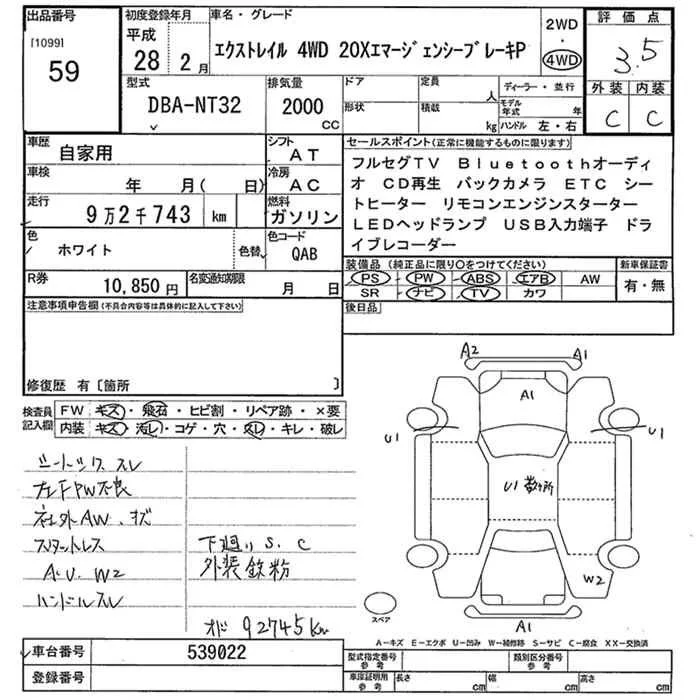 出品番号
[1099]
59
初度登録年月
平成
28 2月
車名・グレード
エクストレイル 4WD 20XエマージェンシーブレーキP
2WD
・
4WD
評価点
3.5
外装 内装
C C
型式
DBA-NT32
排気量
2000
CC
ドア
形状
定員
人
積載
kg
ディーラー・並行
モデル年式 年
ハンドル 左・右
車歴
自家用
シフト
AT
車検
年 月( 日)
冷房
AC
走行
9万2千743 km
燃料
ガソリン
色
ホワイト
色替
色コード
QAB
R券
10,850円
名変通知期限
月 日
セールスポイント(正常に機能するものに限ります)
フルセグTV Bluetoothオーディ
オ CD再生 バックカメラ ETC シー
トヒーター リモコンエンジンスターター
LEDヘッドランプ USB入力端子 ドラ
イブレコーダー
装備品(純正品に限り○をつけてください)
PS PW ABS エアB AW
SR ナビ TV カワ
新車保証書
有・無
後日品
注意事項申告欄(不具合内容等は具体的に記入して下さい)
修復歴 有〔箇所 〕
検査員
記入欄
FW キズ・飛石・ヒビ割・リペア跡・×要
内装 キズ・汚レ・コゲ・穴・スレ・キレ・破レ
シートックススレ
左FPW不良
社外AW.キズ
スタットレス
A.U.W2
ハンドルスレ
下廻りS.C
外装鉄粉
オド92745Km
A2 A1
A1
U1
U1
U1数ヶ所
W2
A1
スペア
A－キズ E－エクボ U－凹み W－補修跡 S－サビ C－腐食 XX－交換済
車台番号
539022
登録番号
型式指定番号
参考
類別区分番号
参考
車庫証明用
参考
長さ cm
幅 cm
高さ cm